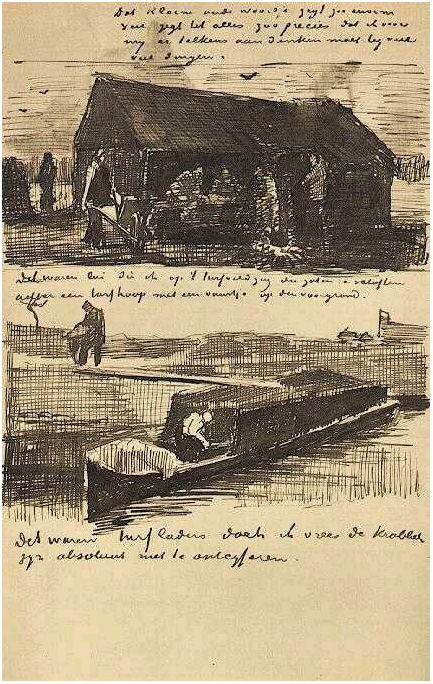 Dat kleine oude woordje zegt zoo enorm
veel zegt het alles zoo precies dat ik voor
my er telkens aan denken moet by veel
veel dingen.
Dat waren lui die ik op 't turfveld zag die zaten te
achter een turfhoop met een vuurtje op den voorgrond.
Dit waren turfladers doch ik vrees de krabbels
zyn absoluut niet te ontcyferen.